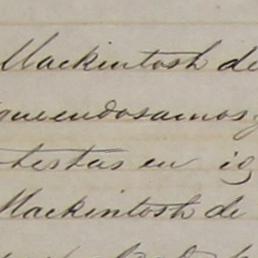 Mackintosh de
que endosamos y
testas en ig
Mackintosh de